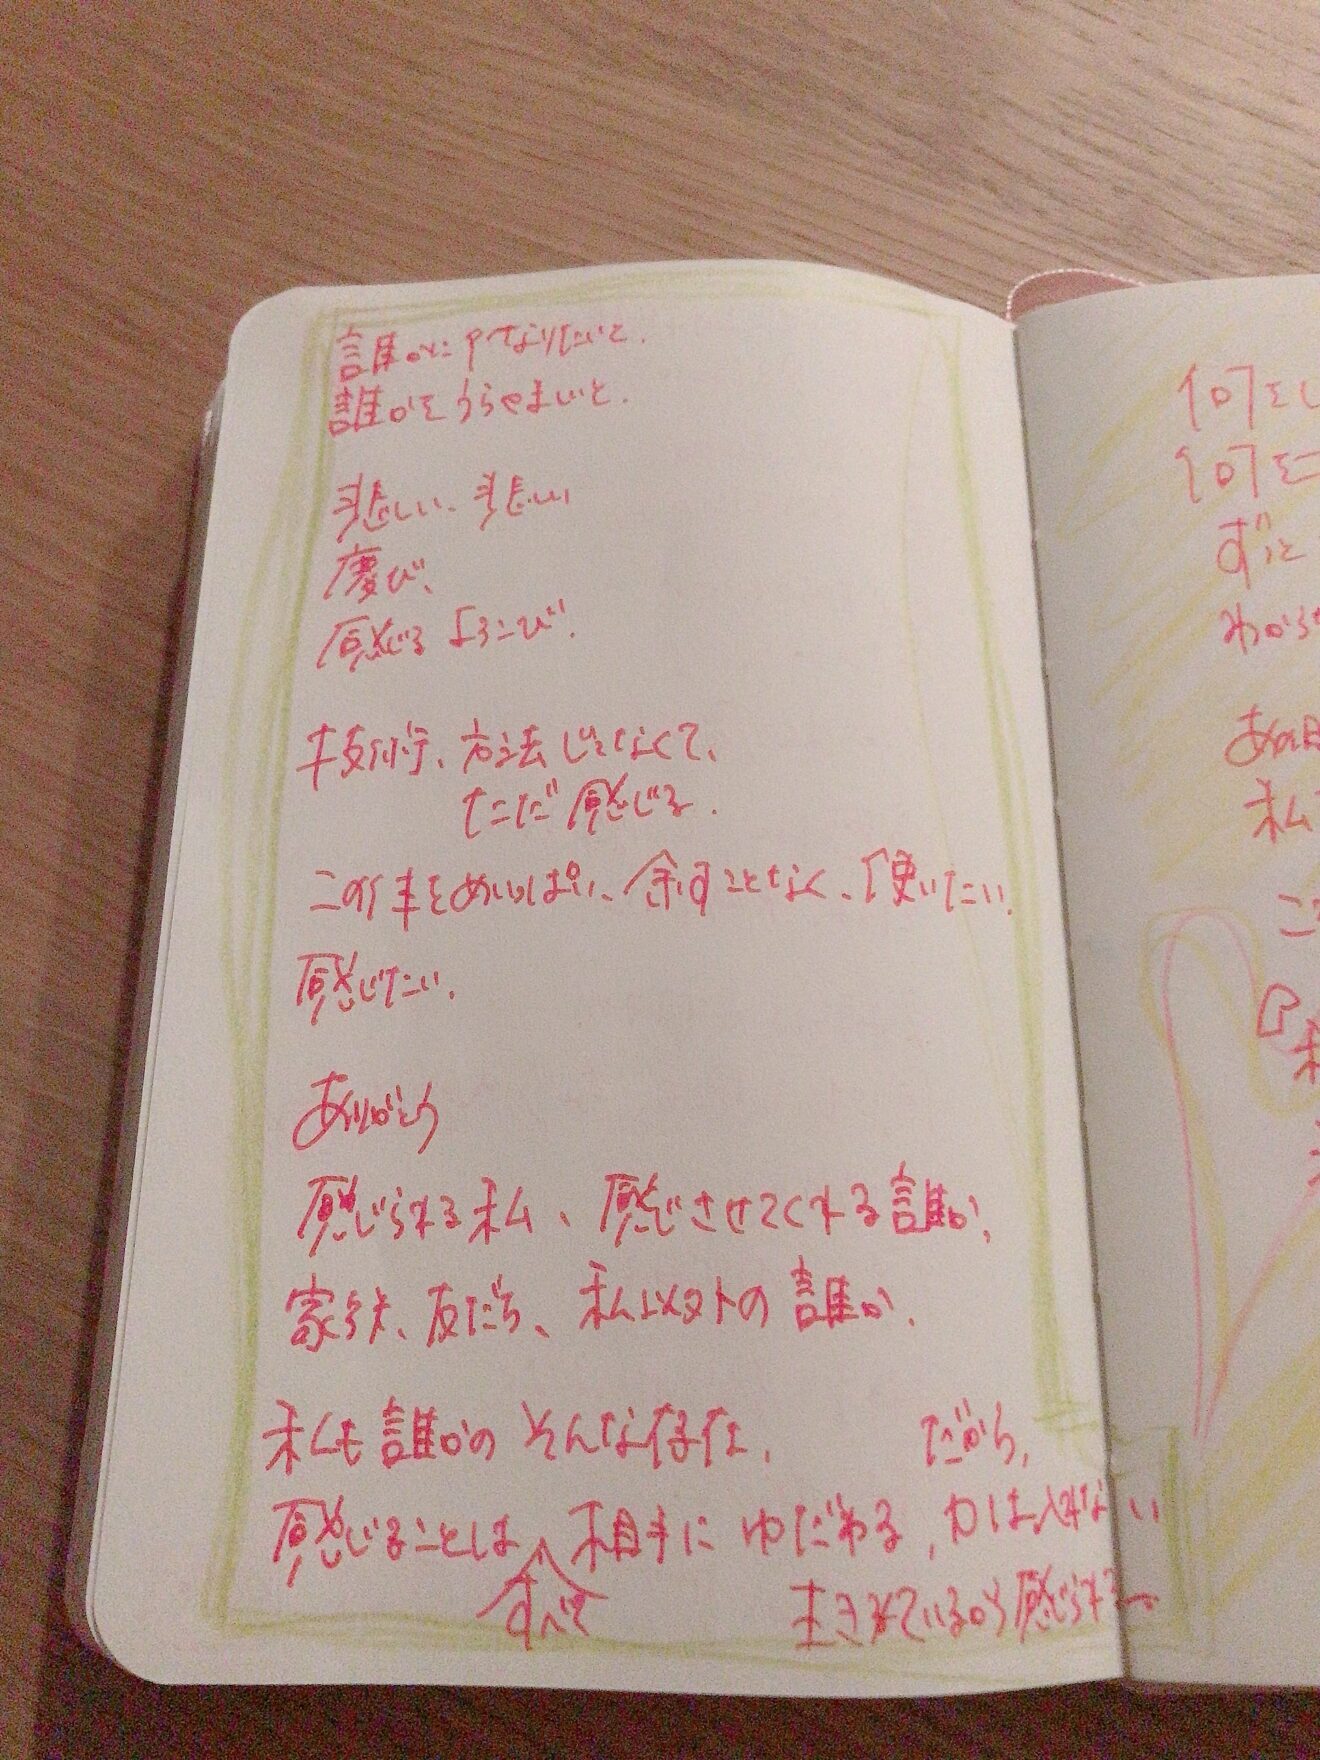 誰かになりたいと.
誰かをうらやましいと.
悲しい、悲しい
慶び、
感じるよろこび.
技術、方法じゃなくて、
ただ感じる.
この体をめいっぱい、余すことなく、使いたい.
感じたい.
ありがとう
感じられる私、感じさせてくれる誰か、
家族、友だち、私以外の誰か.
私も誰かのそんな存在. だから,
感じることはすべて相手にゆだねる, 力は入れない
生きているから感じられる
何をし
何を
ずっと
わから
私